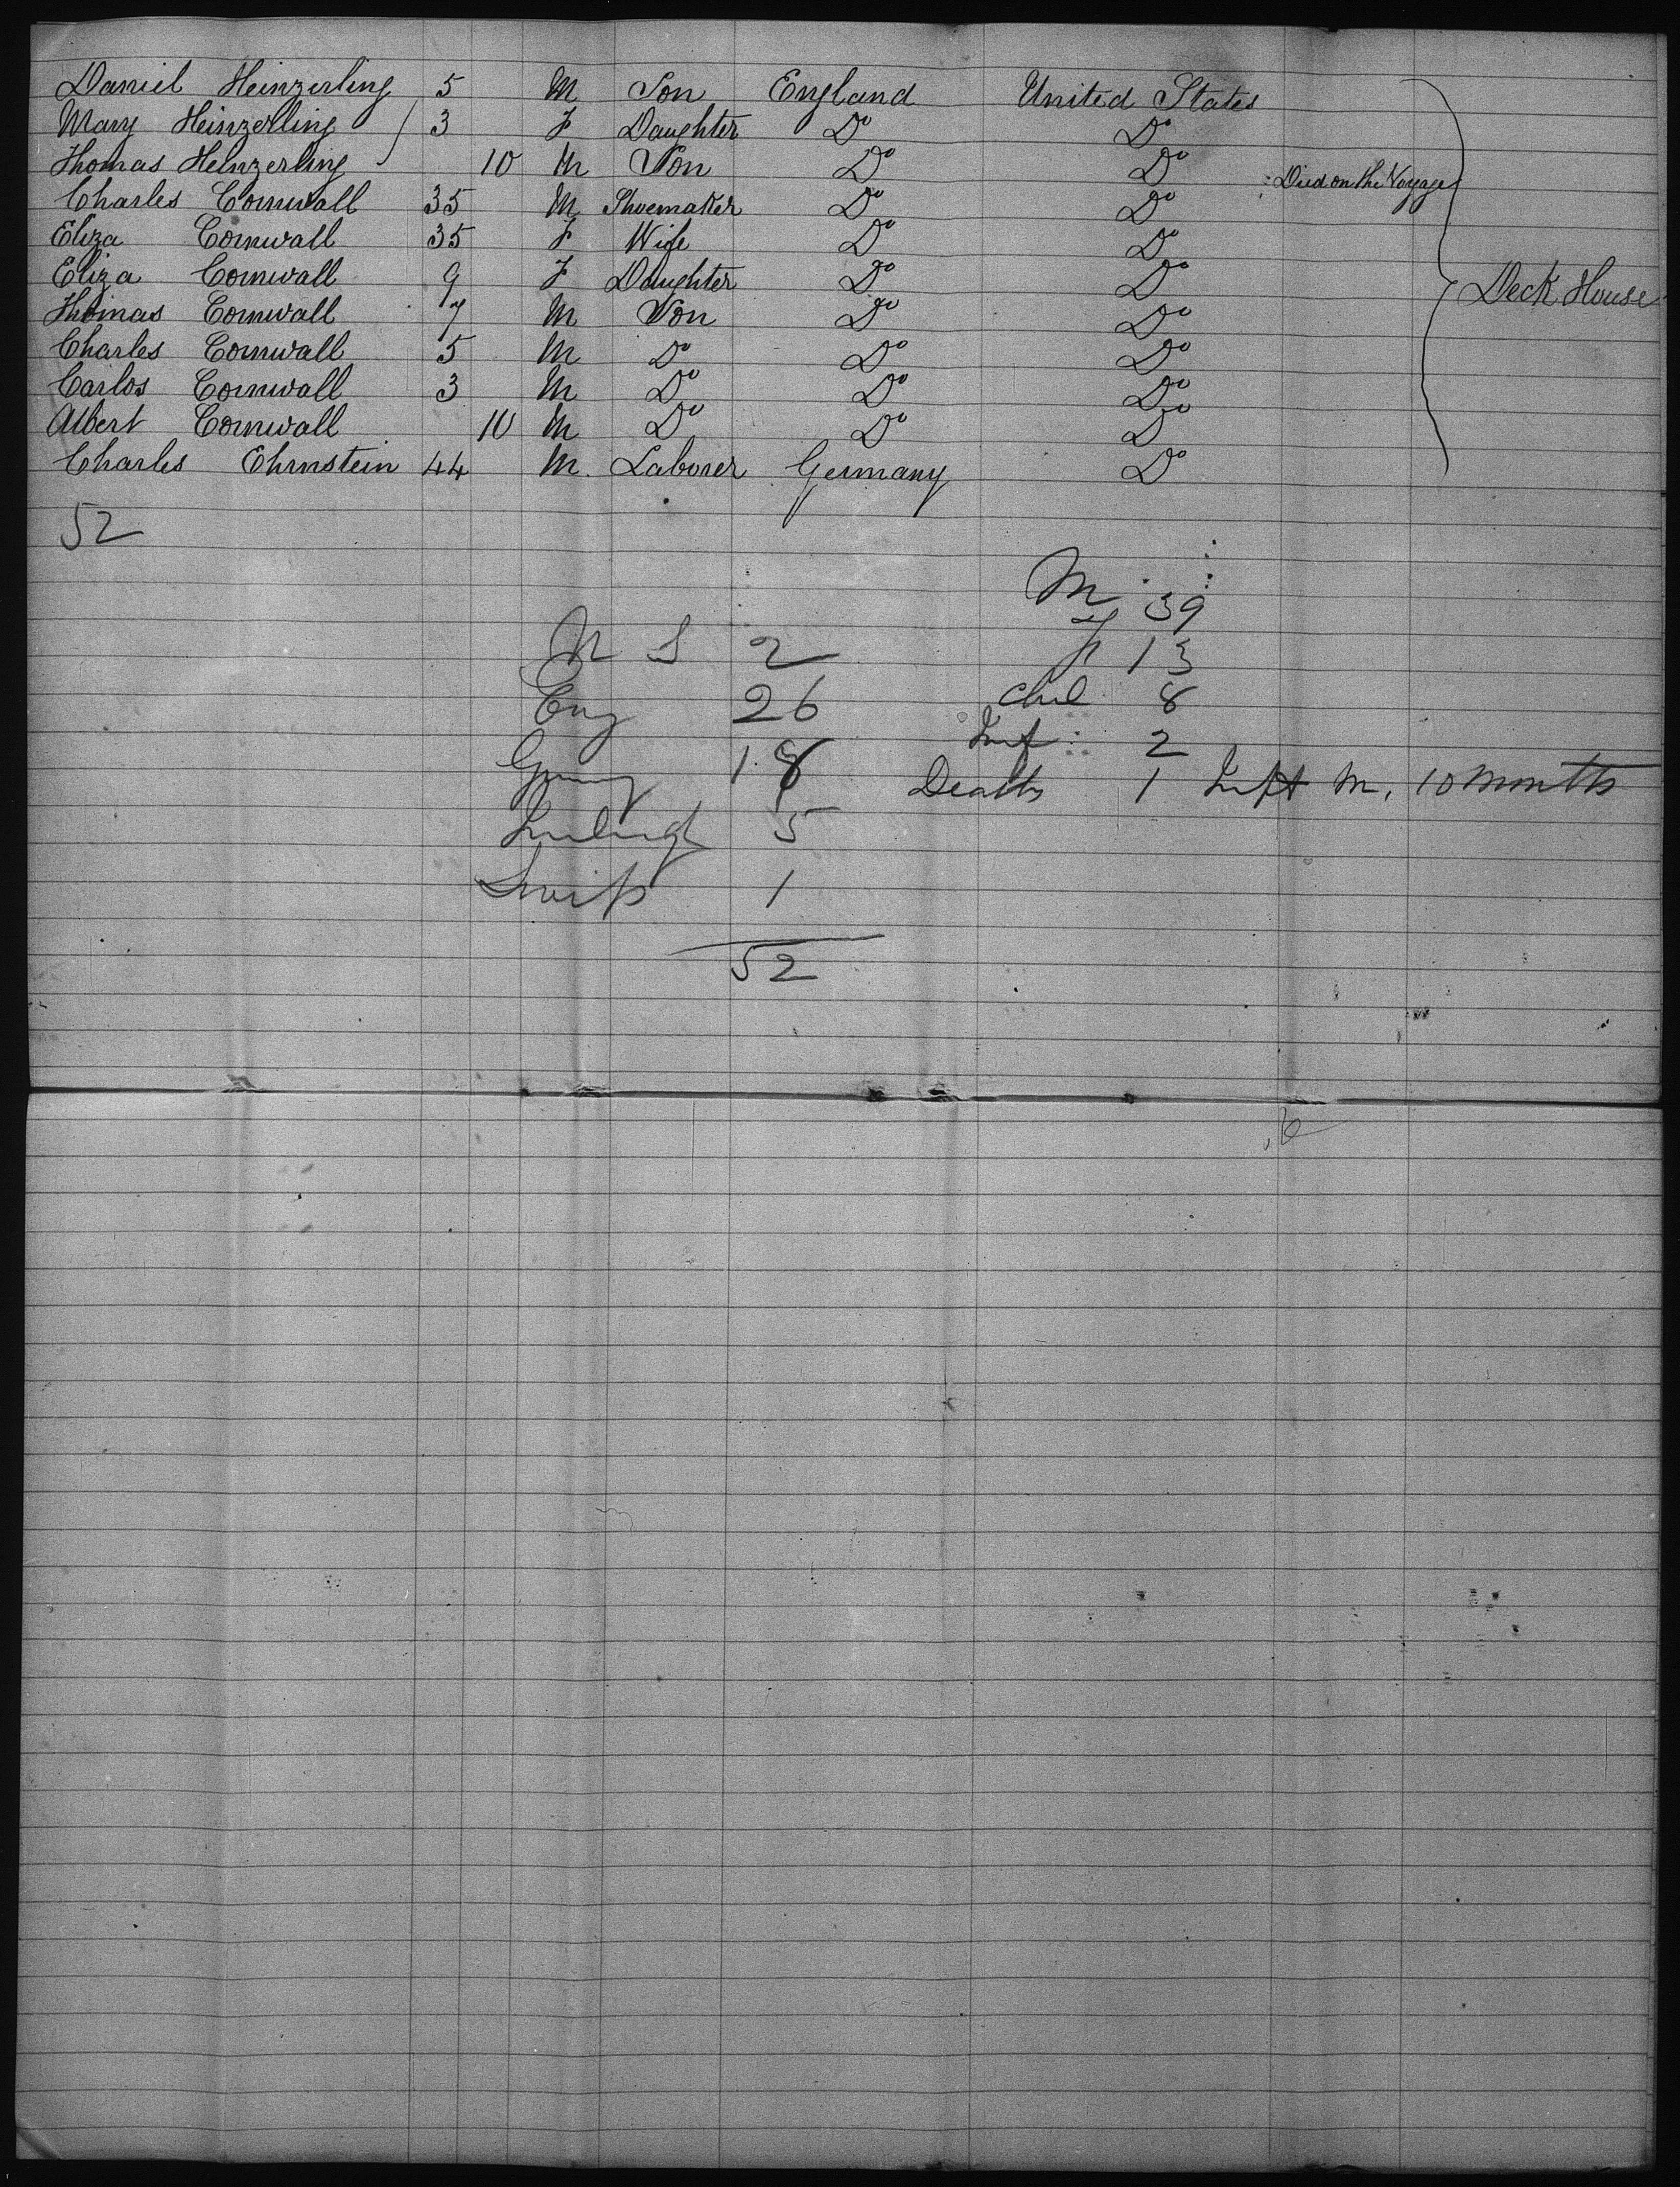 Daniel Heinzerling 5 M Son England United States
Mary Heinzerling 3 F Daughter Do Do
Thomas Heinzerling 10 M Son Do Do Died on the Voyage
Charles Cornwall 35 M Shoemaker Do Do
Eliza Cornwall 35 F Wife Do Do
Eliza Cornwall 9 F Daughter Do Do
Deck House
Thomas Cornwall 7 M Son Do Do
Charles Cornwall 5 M Do Do Do
Carlos Cornwall 3 M Do Do Do
Albert Cornwall 10 M Do Do Do
Charles Ehrnstein 44 M. Laborer Germany Do
52
M 39
U S 2 F 13
Eng 26 Chil 8
Inf: 2
Germy 18 Deaths 1 Inft M, 10 months
5
Swiss 1
52